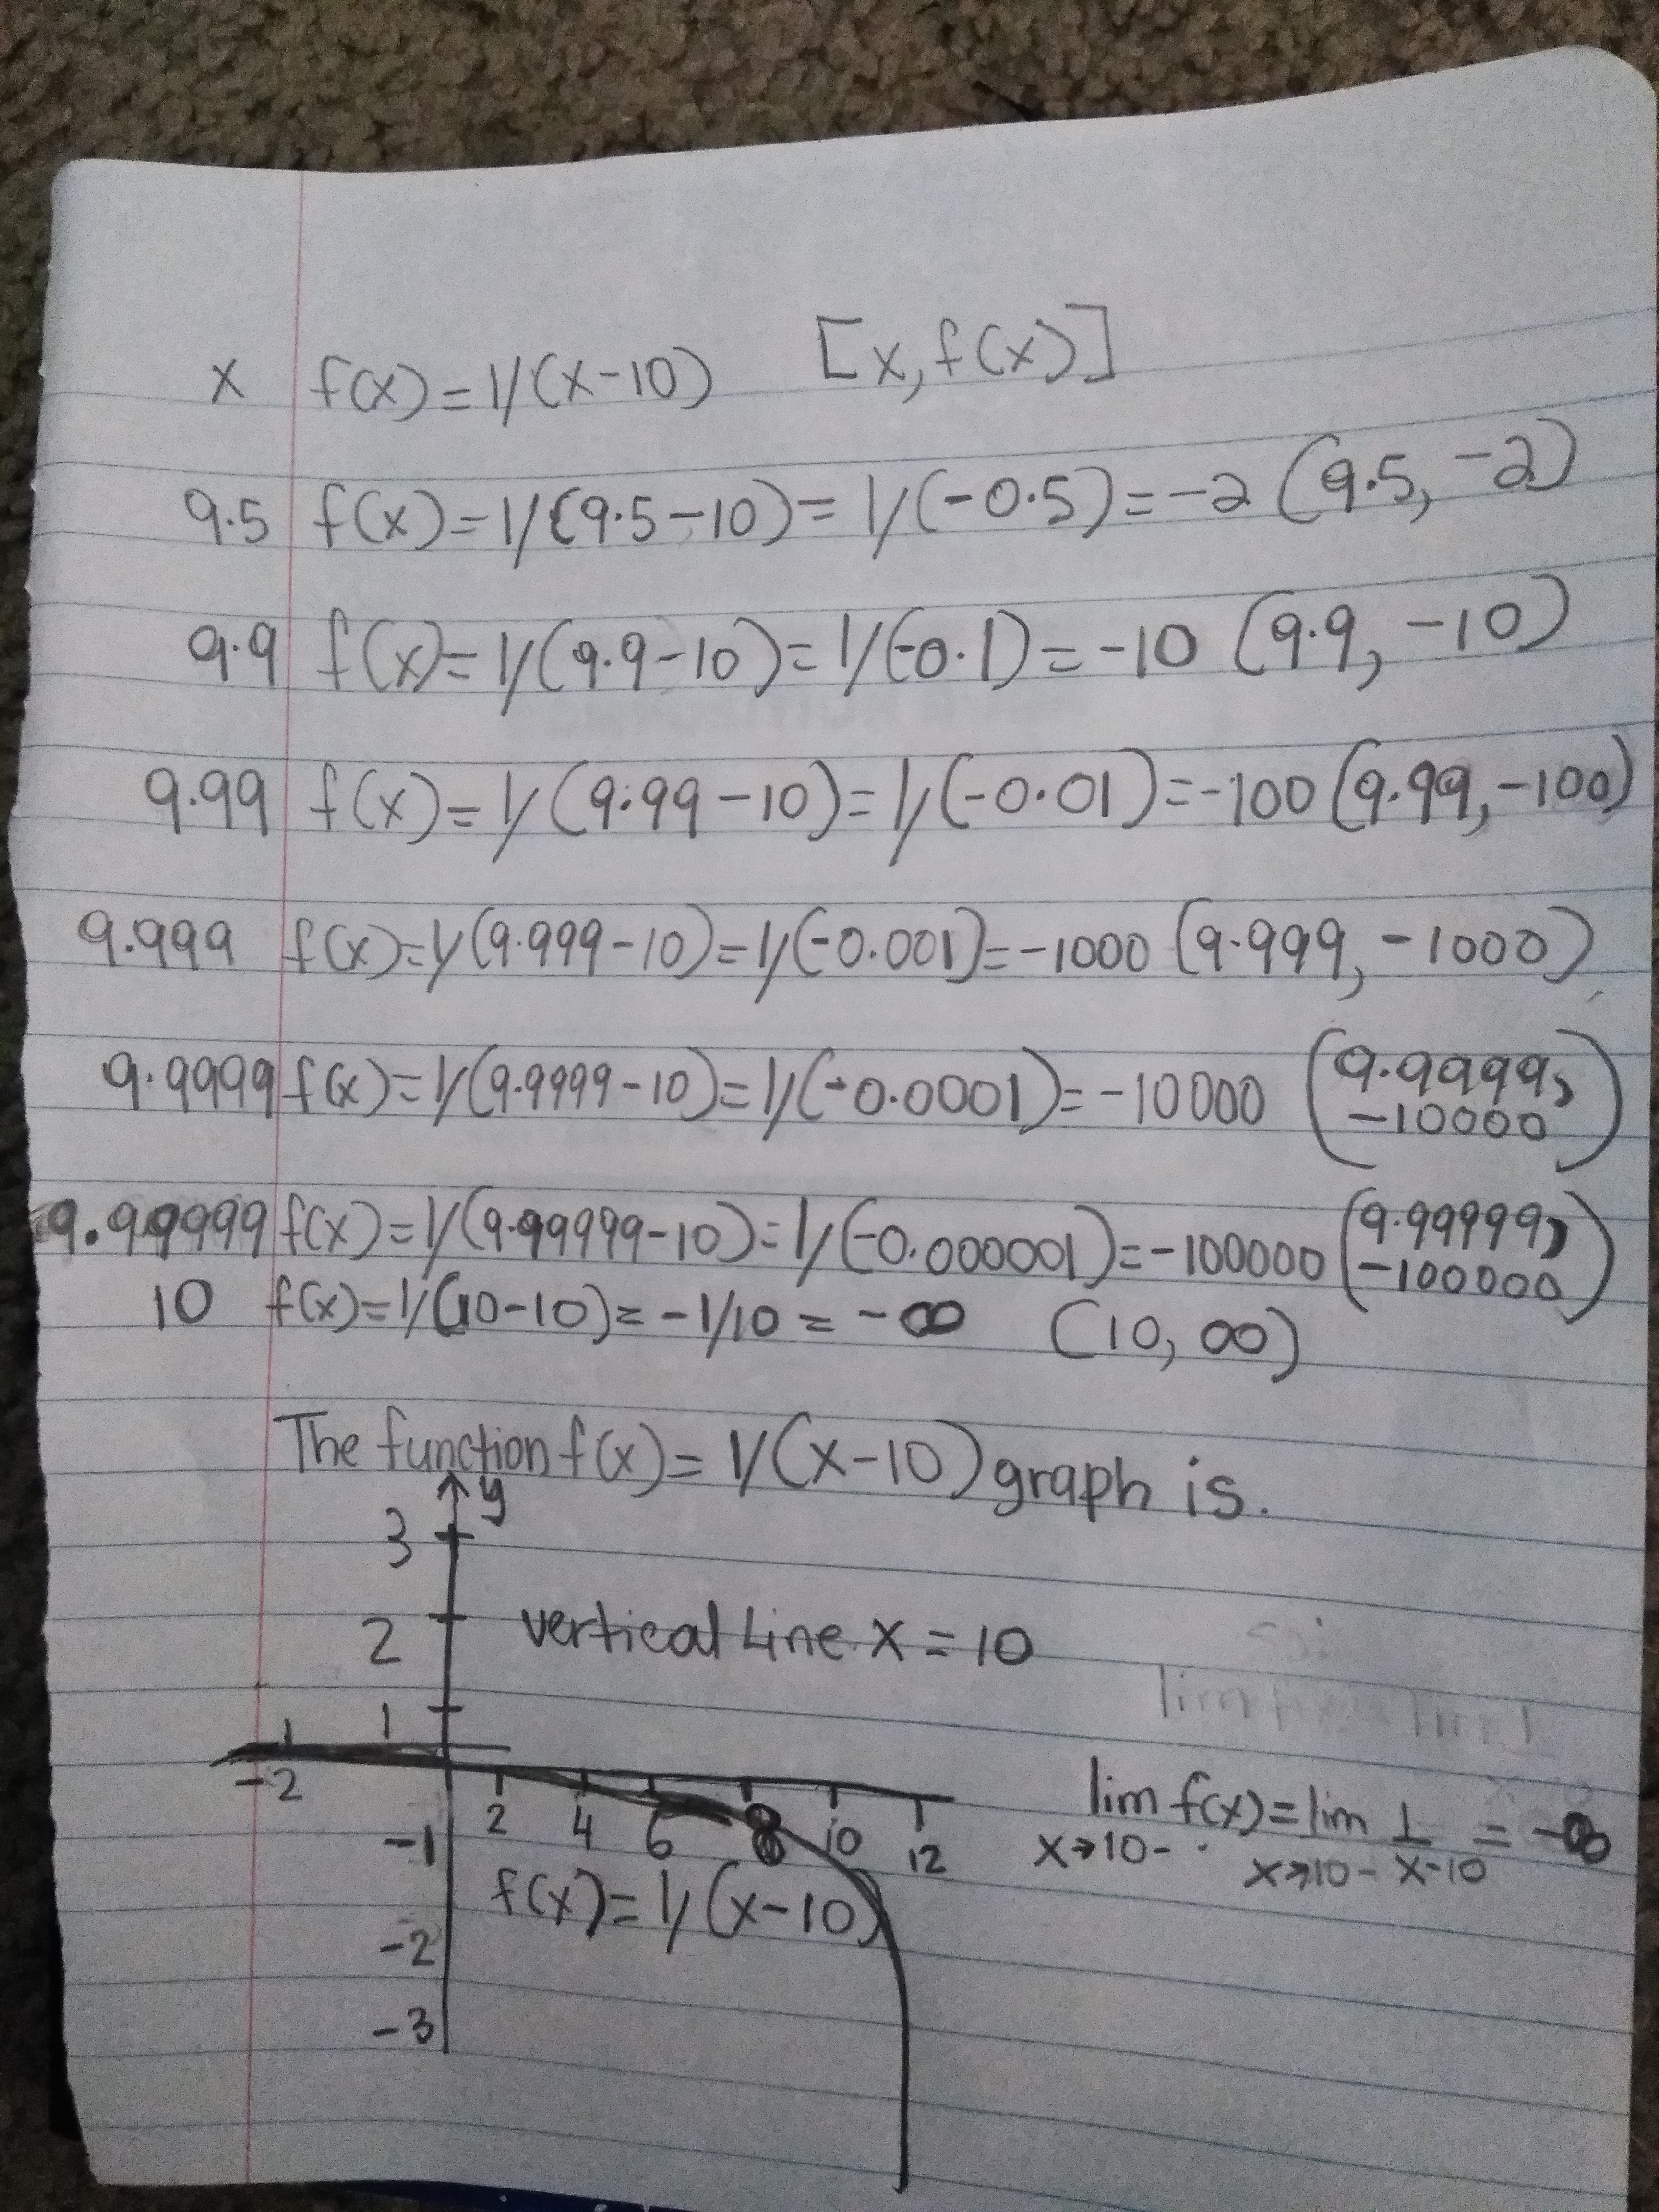 x f(x)=1/(x-10) [x,f(x)]
9.5 f(x)=1/(9.5-10)=1/(-0.5)=-2 (9.5,-2)
9.9 f(x)=1/(9.9-10)=1/(-0.1)=-10 (9.9,-10)
9.99 f(x)=1/(9.99-10)=1/(-0.01)=-100 (9.99,-100)
9.999 f(x)=1/(9.999-10)=1/(-0.001)=-1000 (9.999,-1000)
9.9999 f(x)=1/(9.9999-10)=1/(-0.0001)=-10000 (9.9999,
-10000)
9.99999 f(x)=1/(9.99999-10)=1/(-0.000001)=-100000 (9.99999,
-100000)
10 f(x)=1/(10-10)=-1/10=-∞ (10,∞)
The function f(x)=1/(x-10) graph is.
y
3
2 vertical Line x=10
1
-2 2 4 6 8 10 12
lim f(x)=lim 1 = -∞
x→10- x→10- x-10
-1
f(x)=1/(x-10)
-2
-3